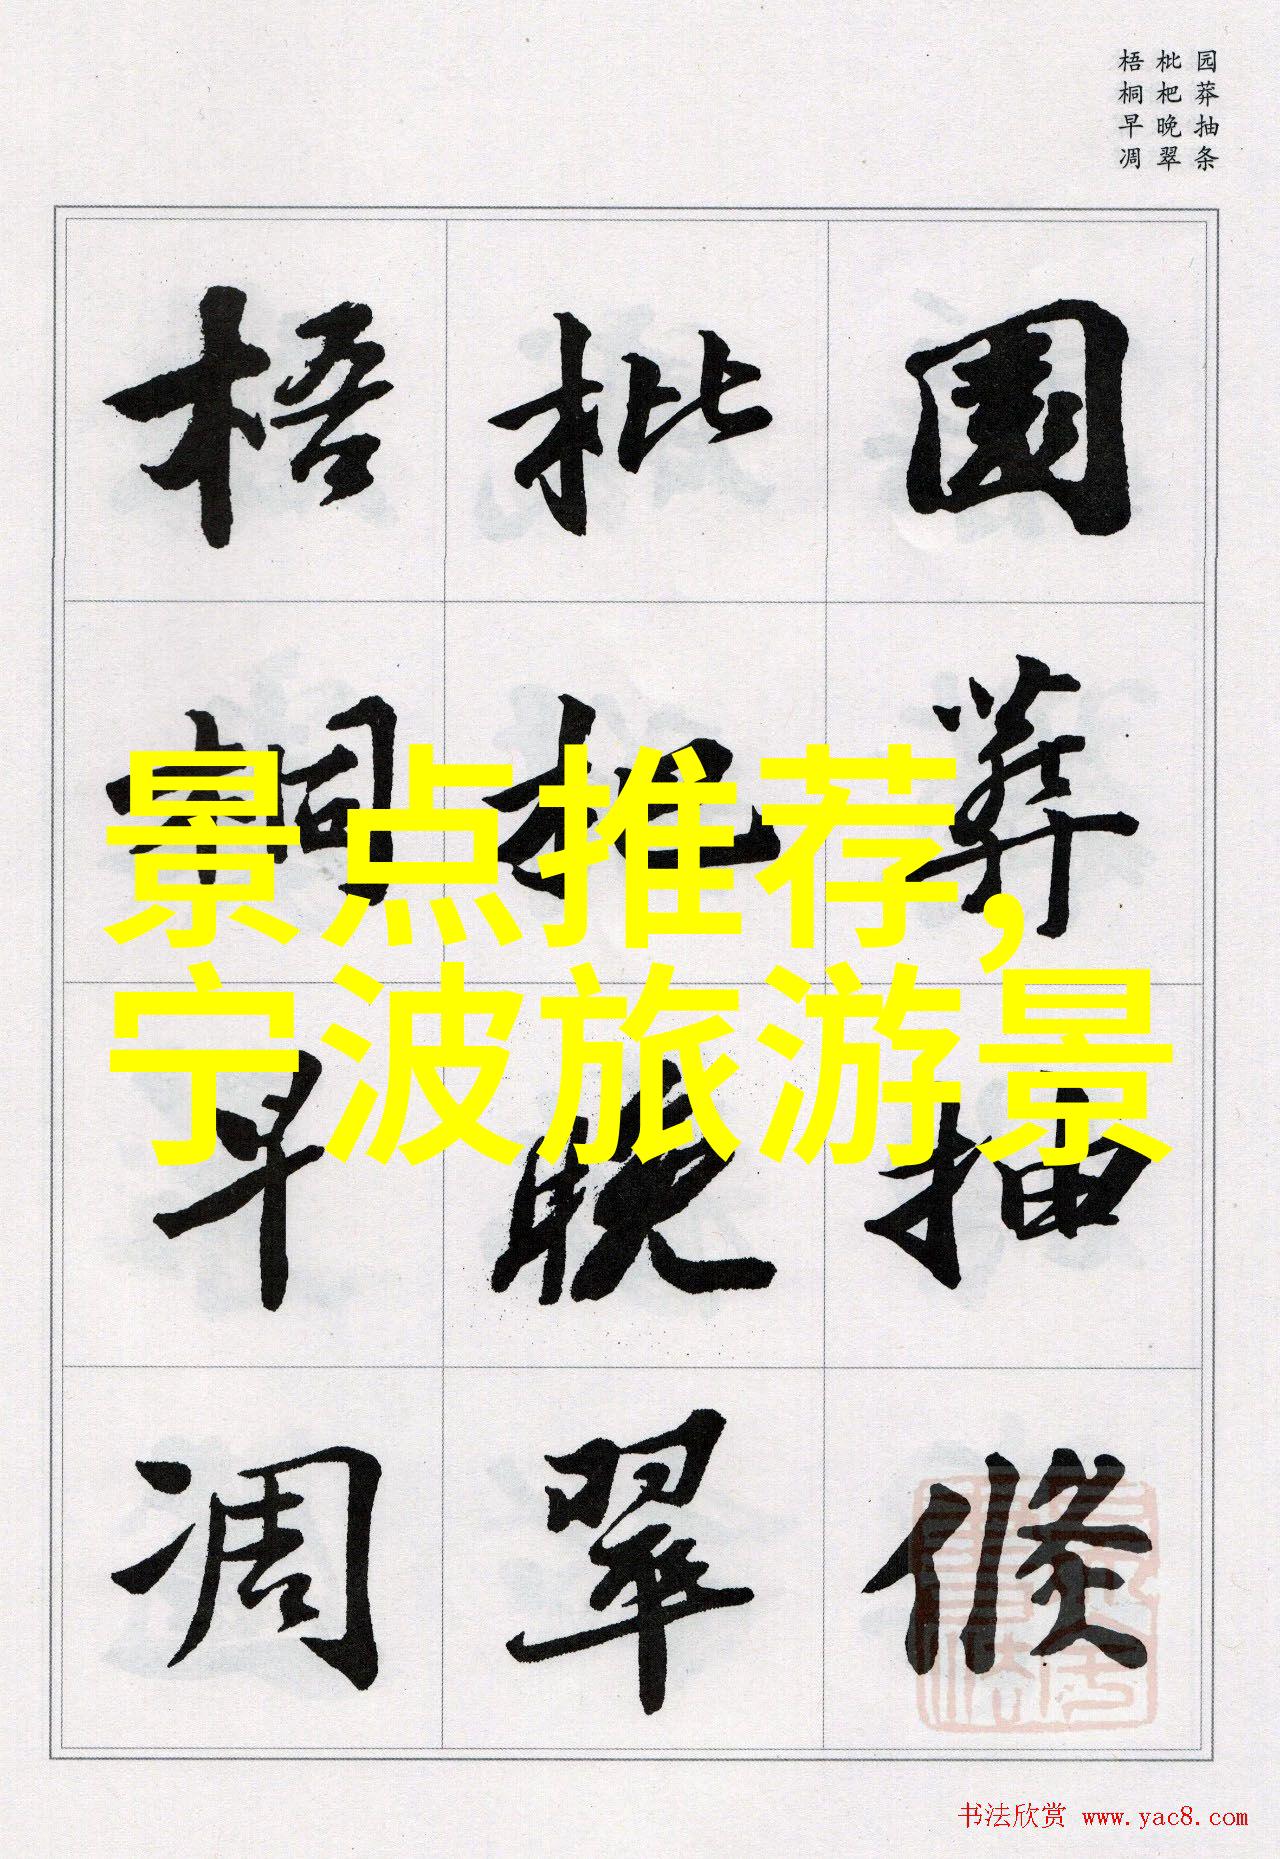 园莽抽条
枇杷晚翠
梧桐早凋
園莽抽條
枇杷晚翠
梧桐早凋
景点推荐,
宁波旅游景
书法欣赏 www.yac8.com